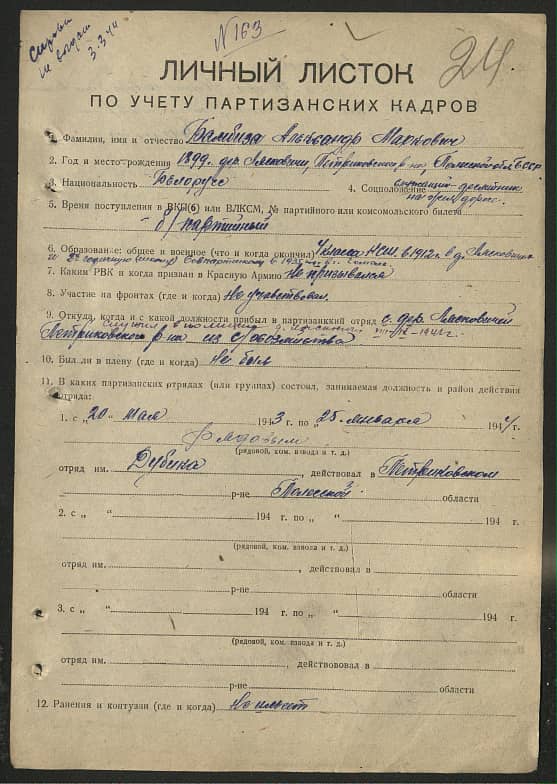 №163
3.3.44
24
ЛИЧНЫЙ ЛИСТОК
ПО УЧЕТУ ПАРТИЗАНСКИХ КАДРОВ
1. Фамилия, имя и отчество Бамбиза Александр Маркович
2. Год и место рождения 1899. дер. Лясковичи, Петриковского р-на, Полесской обл. БССР
3. Национальность Белорус
4. Соцположение служащий - десятник
на жел. дороге.
5. Время поступления в ВКП(б) или ВЛКСМ, № партийного или комсомольского билета
б/партийный
6. Образование: общее и военное (что и когда окончил) 4 класса НСШ в 1912 г. в д. Лясковичи
7. Каким РВК и когда призван в Красную Армию Не призывался
8. Участие на фронтах (где и когда) Не участвовал.
9. Откуда, когда и с какой должности прибыл в партизанский отряд с дер. Лясковичи
Петриковского р-на из с/хозяйства
10. Был ли в плену (где и когда) Не был
11. В каких партизанских отрядах (или группах) состоял, занимаемая должность и район действия
отряда:
1. с „20" мая 1943 г. по „25" января 1944 г.
рядовым
(рядовой, ком. взвода и т. д.)
отряд им. Дубека, действовал в Петриковском
р-не Полесской области
2. с „ " 194 г. по „ " 194 г.
(рядовой, ком. взвода и т. д.)
отряд им. , действовал в
р-не области
3. с „ " 194 г. по „ " 194 г.
(рядовой, ком. взвода и т. д.)
отряд им. , действововал в
р-не области
12. Ранения и контузии (где и когда) Не имеет